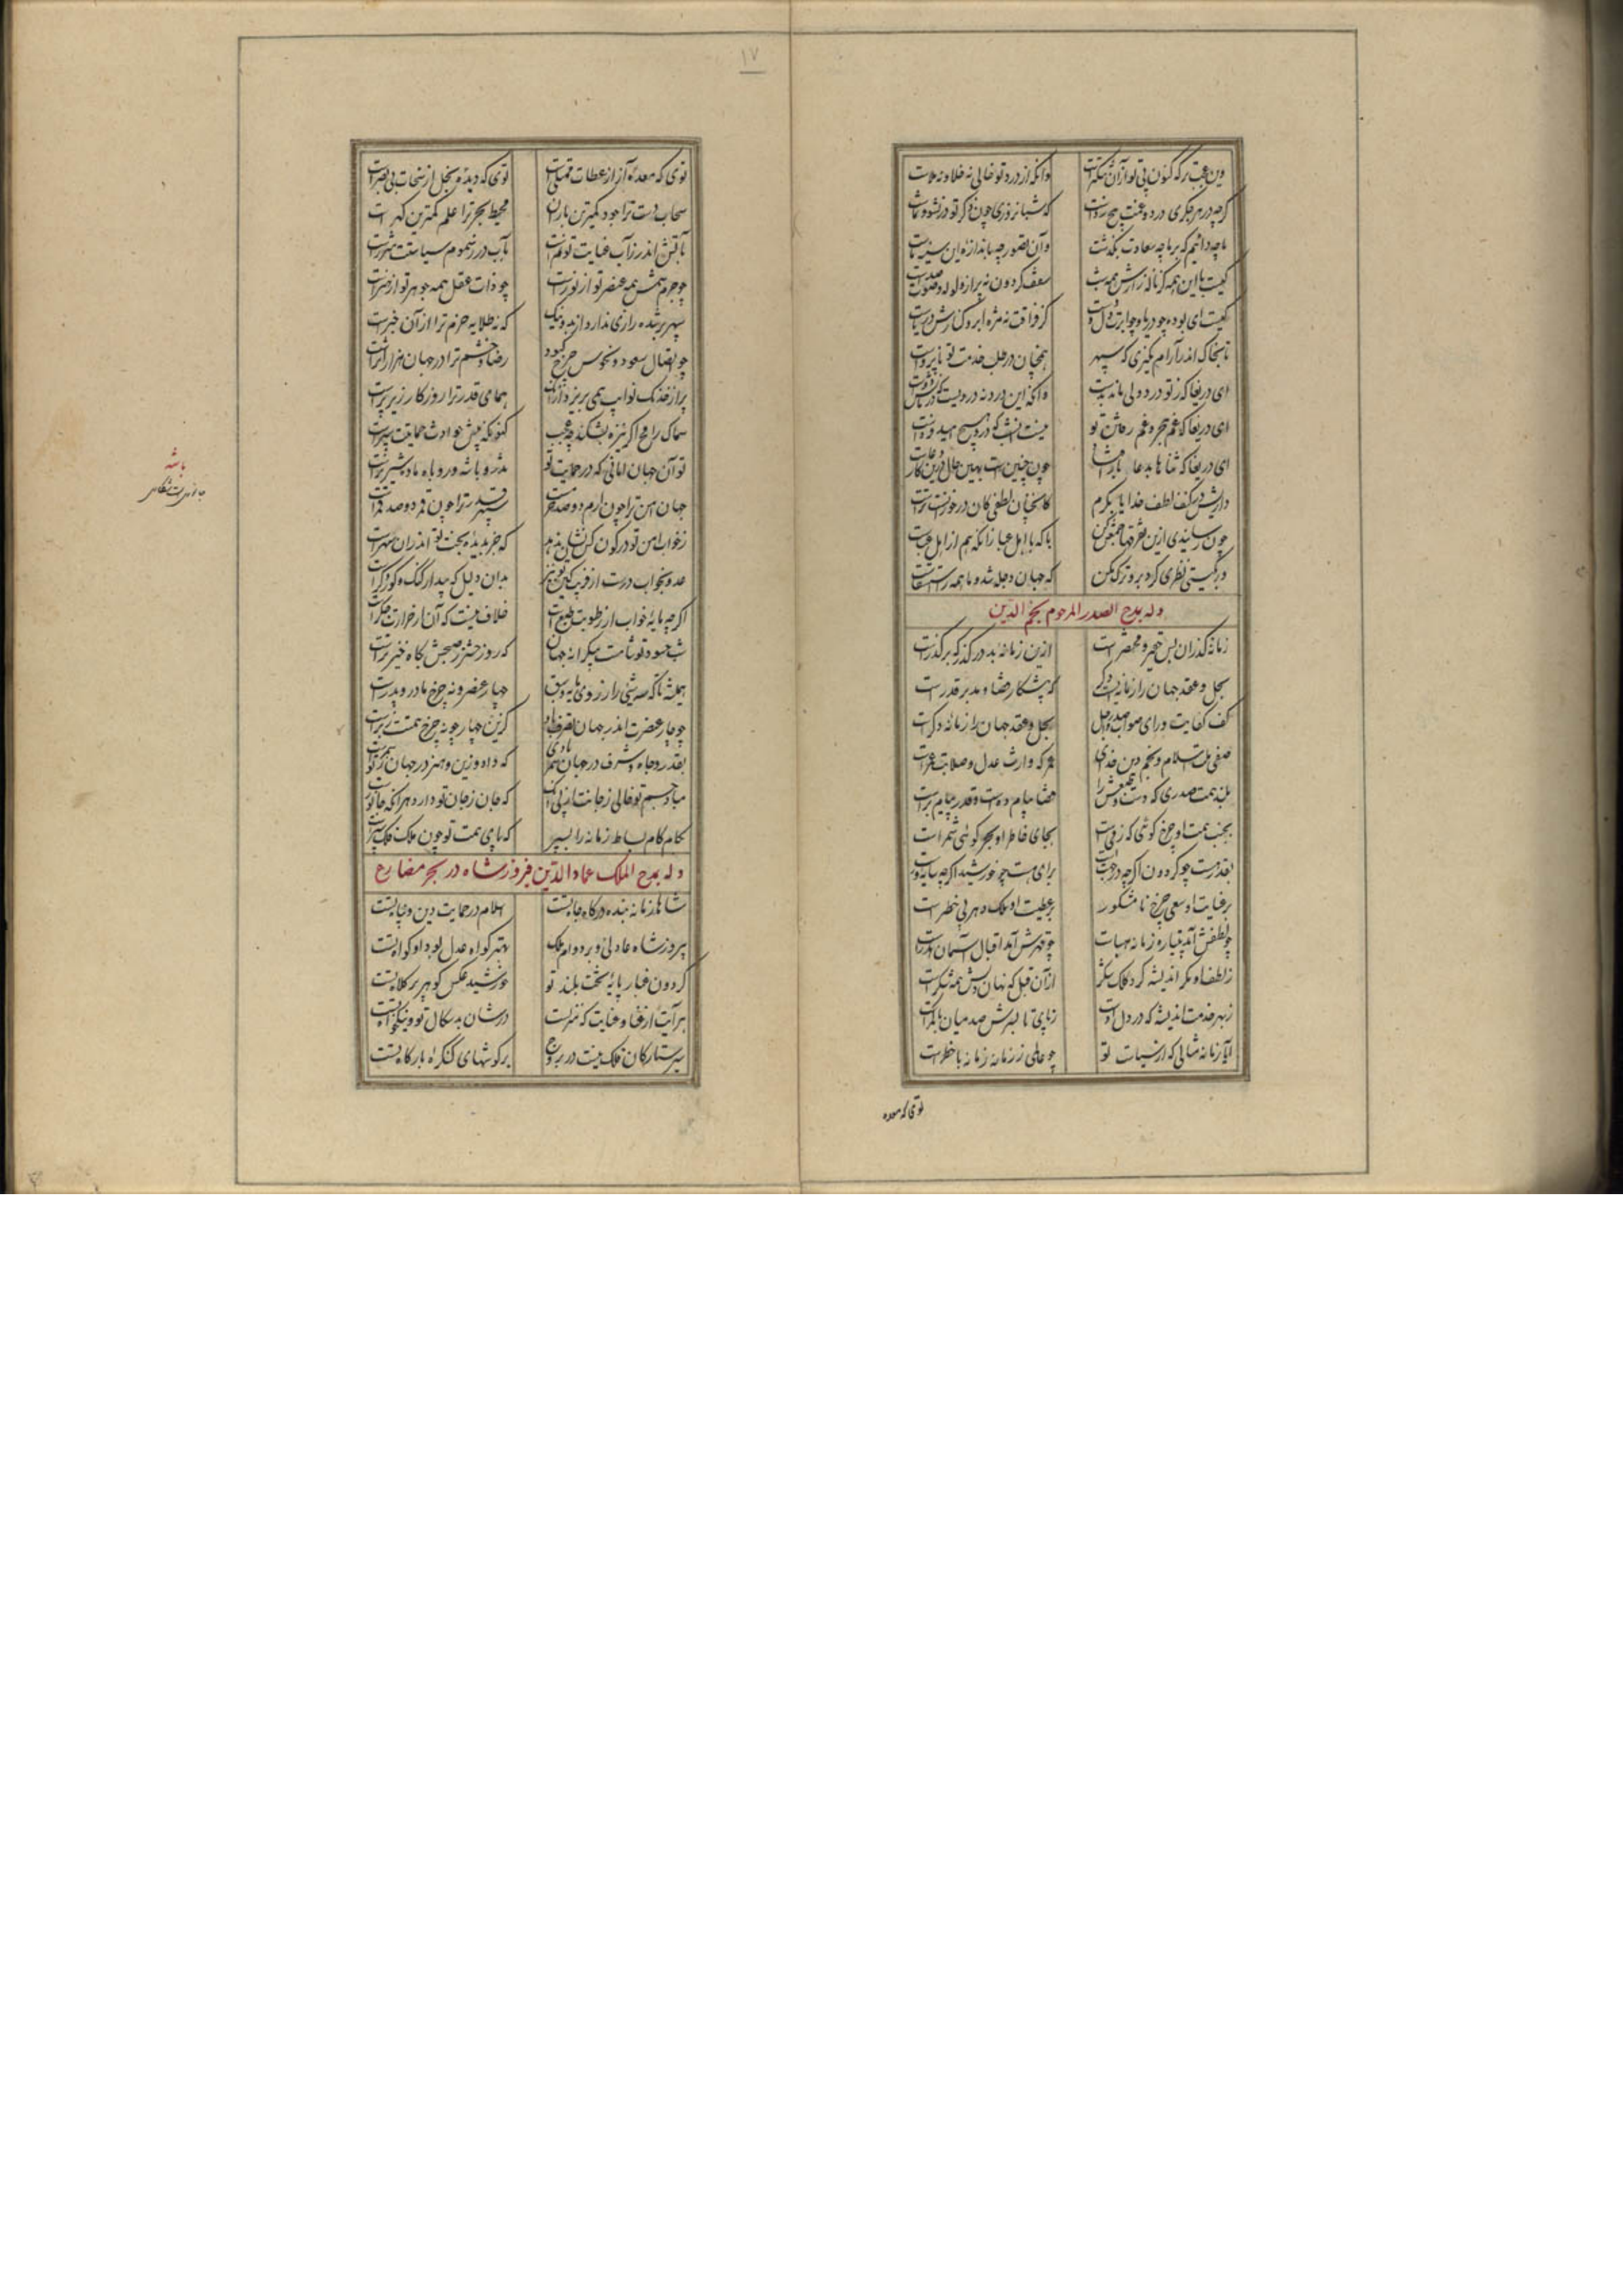 ۱۷
وین عجب تر که کنون بی تو از آن تنگترست وانکه از درد تو خالی نه خلا و نه ملاست
گرچه در هر جگری درد و غمت هیچ که شبانروزی چون ذکر تو در نشو و نماست
ما چه دانیم که بر ما چه سعادت بگذشت وان تصور چه باندازه این سینه ماست
کیست با این همه کز ناله زارش همه شب سقف گردون نه پر از ولوله و صوت و صداست
کیست ای بوده چو دریا و چو ابرت دل و دست کز فراقت نه مژه ابر و کنارش دریاست
تا بخاک اندر آرام نگیری که سپهر همچنان در طلب خدمت تو ناپرواست
ای دریغا که ز تو درد دلی ماند بدست وانکه این درد نه دردیست که درمانش دواست
ای دریغا که غم هجر و غم رفتن تو نیست آن شب که درو هیچ امید فرداست
ای دریغا که ثنا ها بدعا باز افتاد چون چنین است بهین حال درین کار دعاست
دارش در کنف لطف خدایا بکرم کانچنان لطفی کان در خور آنست تراست
چون رسانیدی ازین تفرقها جمعش کن با که با اهل عبا زانکه هم از اهل عباست
ور بگیتی نظری کرد برو ترک مکن که جهان دجله شد و ما همه را استسقاست
وله بمدح الصدر المرحوم نجم الدین
زمانه گذران بس حقیر و مختصر است ازین زمانه بد در گذر که بر گذرست
بحل و عقد جهان را زمانه ایست دگر که پیشکار قضا و مدبر قدر است
کف کفایت و رای صواب صدر اجل بحل و عقد جهان را زمانه دگر است
صفی ملت اسلام و نجم دین خدای عمر که وارث عدل و صلابت عمر است
بلند همت صدری که دست و طبعش را قضا پیام ده است و قدر پیام بر است
بجنب همت او چرخ گوئی که زمین است بجای خاطر او بحر گوئی شمر است
بقدر هست چو گردون اگرچه در جهت است برای هست چو خورشید اگرچه سایه ورست
بر عنایت او سعی چرخ نامشکور بر عطیت او ملک دهر بی خطر است
چو لطفش آید پتیاره زمانه هباست چو قهرش آید اقبال آسمان هدر است
ز لطف او مگر اندیشه کرد کلک شکر از آن قبل که نهان دلش همه شکر است
ز بهر خدمت اندیشه که در دل اوست ز پای تا بسرش صد میان با کمرست
ایا زمانه مثالی که از سیاست تو چو عالمی ز زمانه زمانه با خطر است
توی که معده
توی که معده آز از عطات ممتلی است توی که دیده بخل از سخات بی بصر است
سحاب دست ترا جود کمترین باران محیط بحر ترا علم کمترین گهر است
بآتش اندر ز آب عنایت تو نم است بآب در ز سموم سیاستت شرر است
چو جرم شمس همه عنصر تو از نور است چو ذات عقل همه جوهر تو از هنر است
سپهر بر شده رازی ندارد از بد و نیک که نه طلایه حزم ترا از آن خبر است
چو اتصال سعود و نحوس چرخ کبود رضا و خشم ترا در جهان هزار اثر است
پر از خدنگ نوایب همی بریزد از آن همای قدر ترا روزگار زیر پر است
سماک رامح اگر نیزه بشکند چه عجب کنونکه پیش حوادث حمایتت سپر است
تو آن جهان امانی که در حمایت تو تذرو با شه و روباه ماده شیر نر است
جهان امن ترا چون ارم دو صد حرم است سپهر قدر ترا چون قمر دو صد قمر است
ز خواب امن تو در کون کس نشان ندهد که جز بدیده بخت تو اندران سهرست
عدو بخواب درست از فریب کین تو نیز بدان دلیل که پیدار گنگ و کور و کر است
اگرچه مایه خواب از رطوبت طبع است خلاف نیست که آن از حرارت جگر است
شب حسود تو شامیست بیکرانه چنان که روز حشر ز صبحش پگاه خیز تر است
همیشه تا که سه شیئی را ز روی پایه و سبق چهار عنصر و نه چرخ مادر و پدر است
چو چار عنصرت اندر جهان تصرف باد کزین چهار چو نه چرخ همتت زبر است
بقدر و جاه و شرف در جهان سمر بادی که داد و دین و هنر در جهان ز تو سمر است
مباد جسم تو خالی ز جانت از پی آنک که جان ز جان تو دارد هر آنکه جانور است
بکام کام بساط زمانه را بسپر که پای همت تو چون ملک فلک سپر است
وله بمدح الملک عماد الدین فیروز شاه در بحر مضارع
شاها زمانه بنده درگاه جاه تست اسلام در حمایت دین و پناه تست
پیروز شاه عادلی و بر دوام ملک بهتر گواه عدل بود او گواه تست
گردون غبار پایه تخت بلند تو خورشید عکس گوهر پر کلاه تست
هر آیت از عنا و عنایت که منزلست در شان بد سگال تو و نیکخواه تست
سیر ستارگان فلک نیست در بروج بر گوشهای کنگره بارگاه تست
باشه